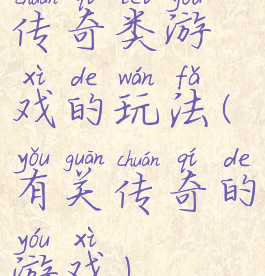 chuán qí lèi yóu
传奇类游
xì de wán fǎ
戏的玩法(
yǒu guān chuán qí de
有关传奇的
yóu xì
游戏)